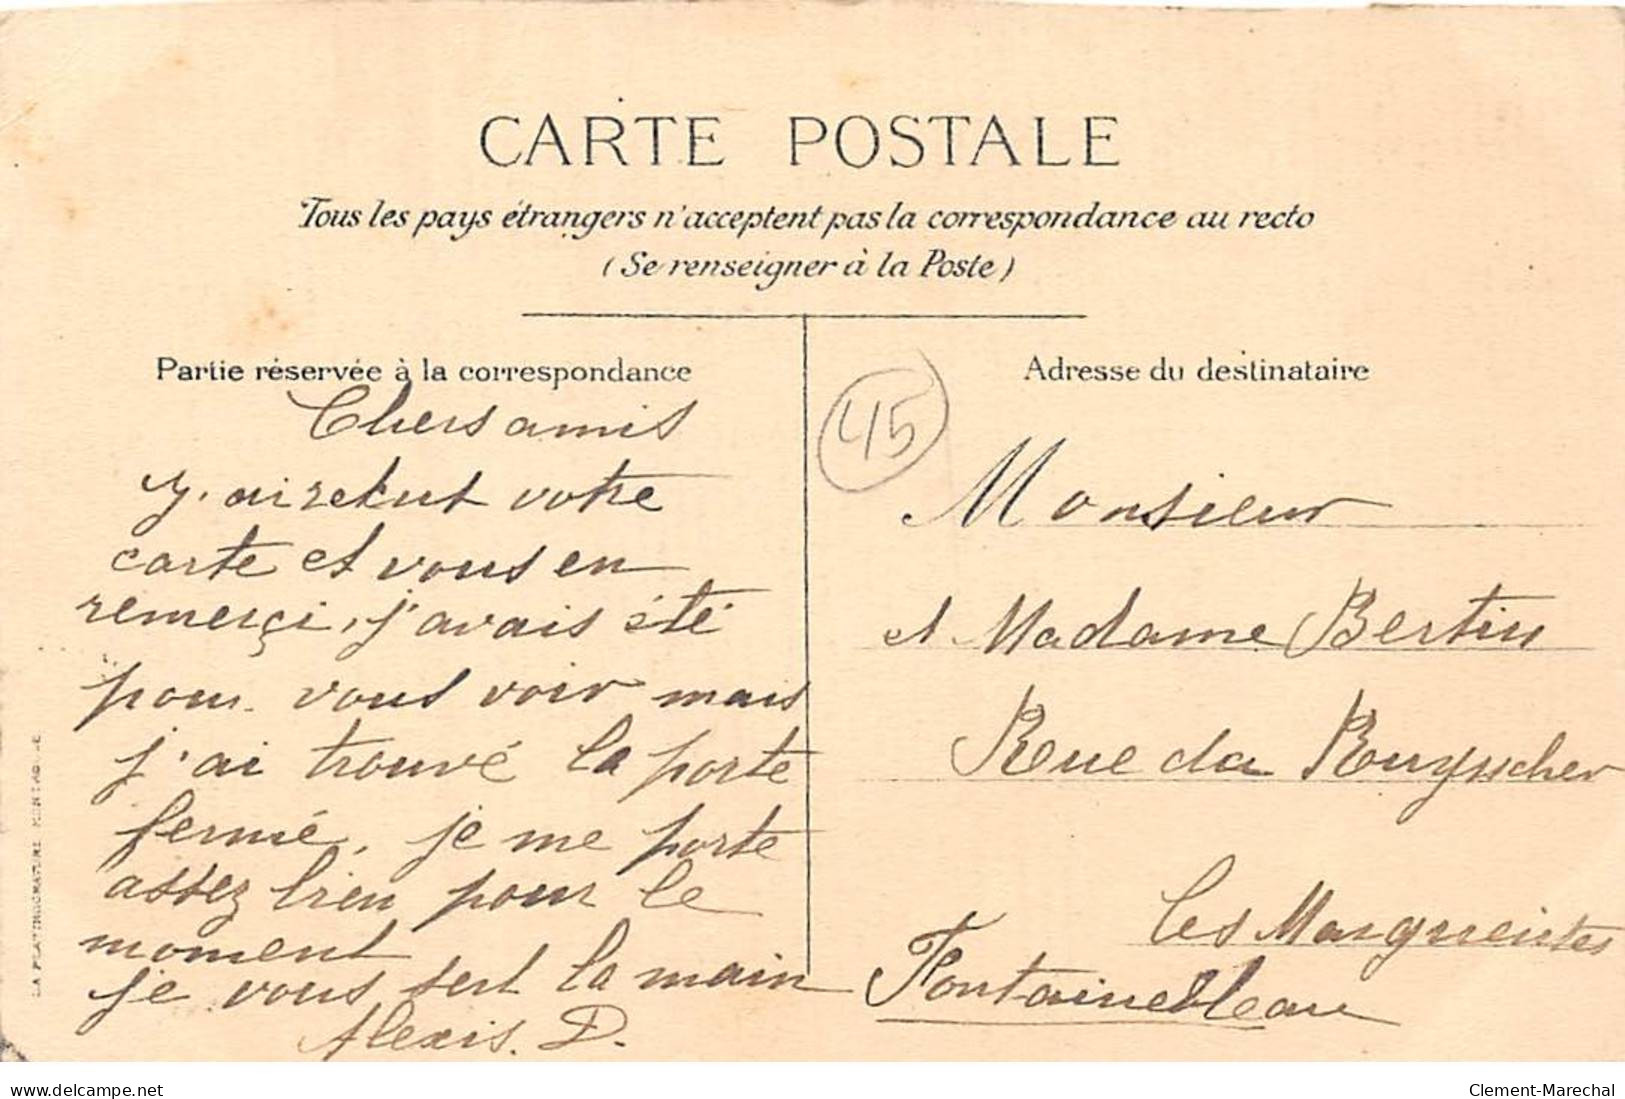 CARTE POSTALE
Tous les pays étrangers n'acceptent pas la correspondance au recto
(Se renseigner à la Poste)
Partie réservée à la correspondance
Chers amis
j. ai reçut votre
carte et vous en
remerçi, j'avais été
pour vous voir mais
j'ai trouvé la porte
fermé, je me porte
assez bien pour le
moment
je vous sert la main
Alexis. D.
45
Adresse du destinataire
Monsieur
et Madame Bertin
Rue da
Les Marguerites
Fontainebleau
delcampe.net
Clement-Marechal